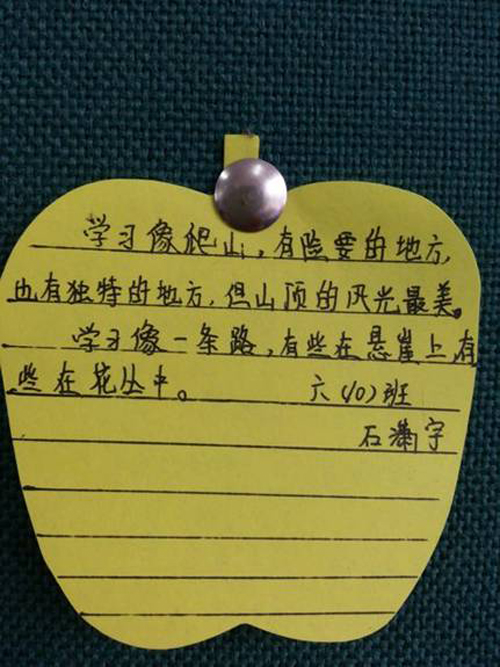 学习像爬山，有险要的地方，
也有独特的地方，但山顶的风光最美。
学习像一条路，有些在悬崖上有
些在花丛中。 六(10)班
石潇宇